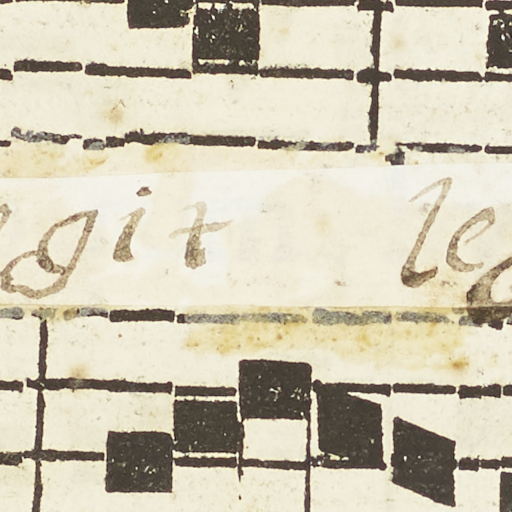 git le